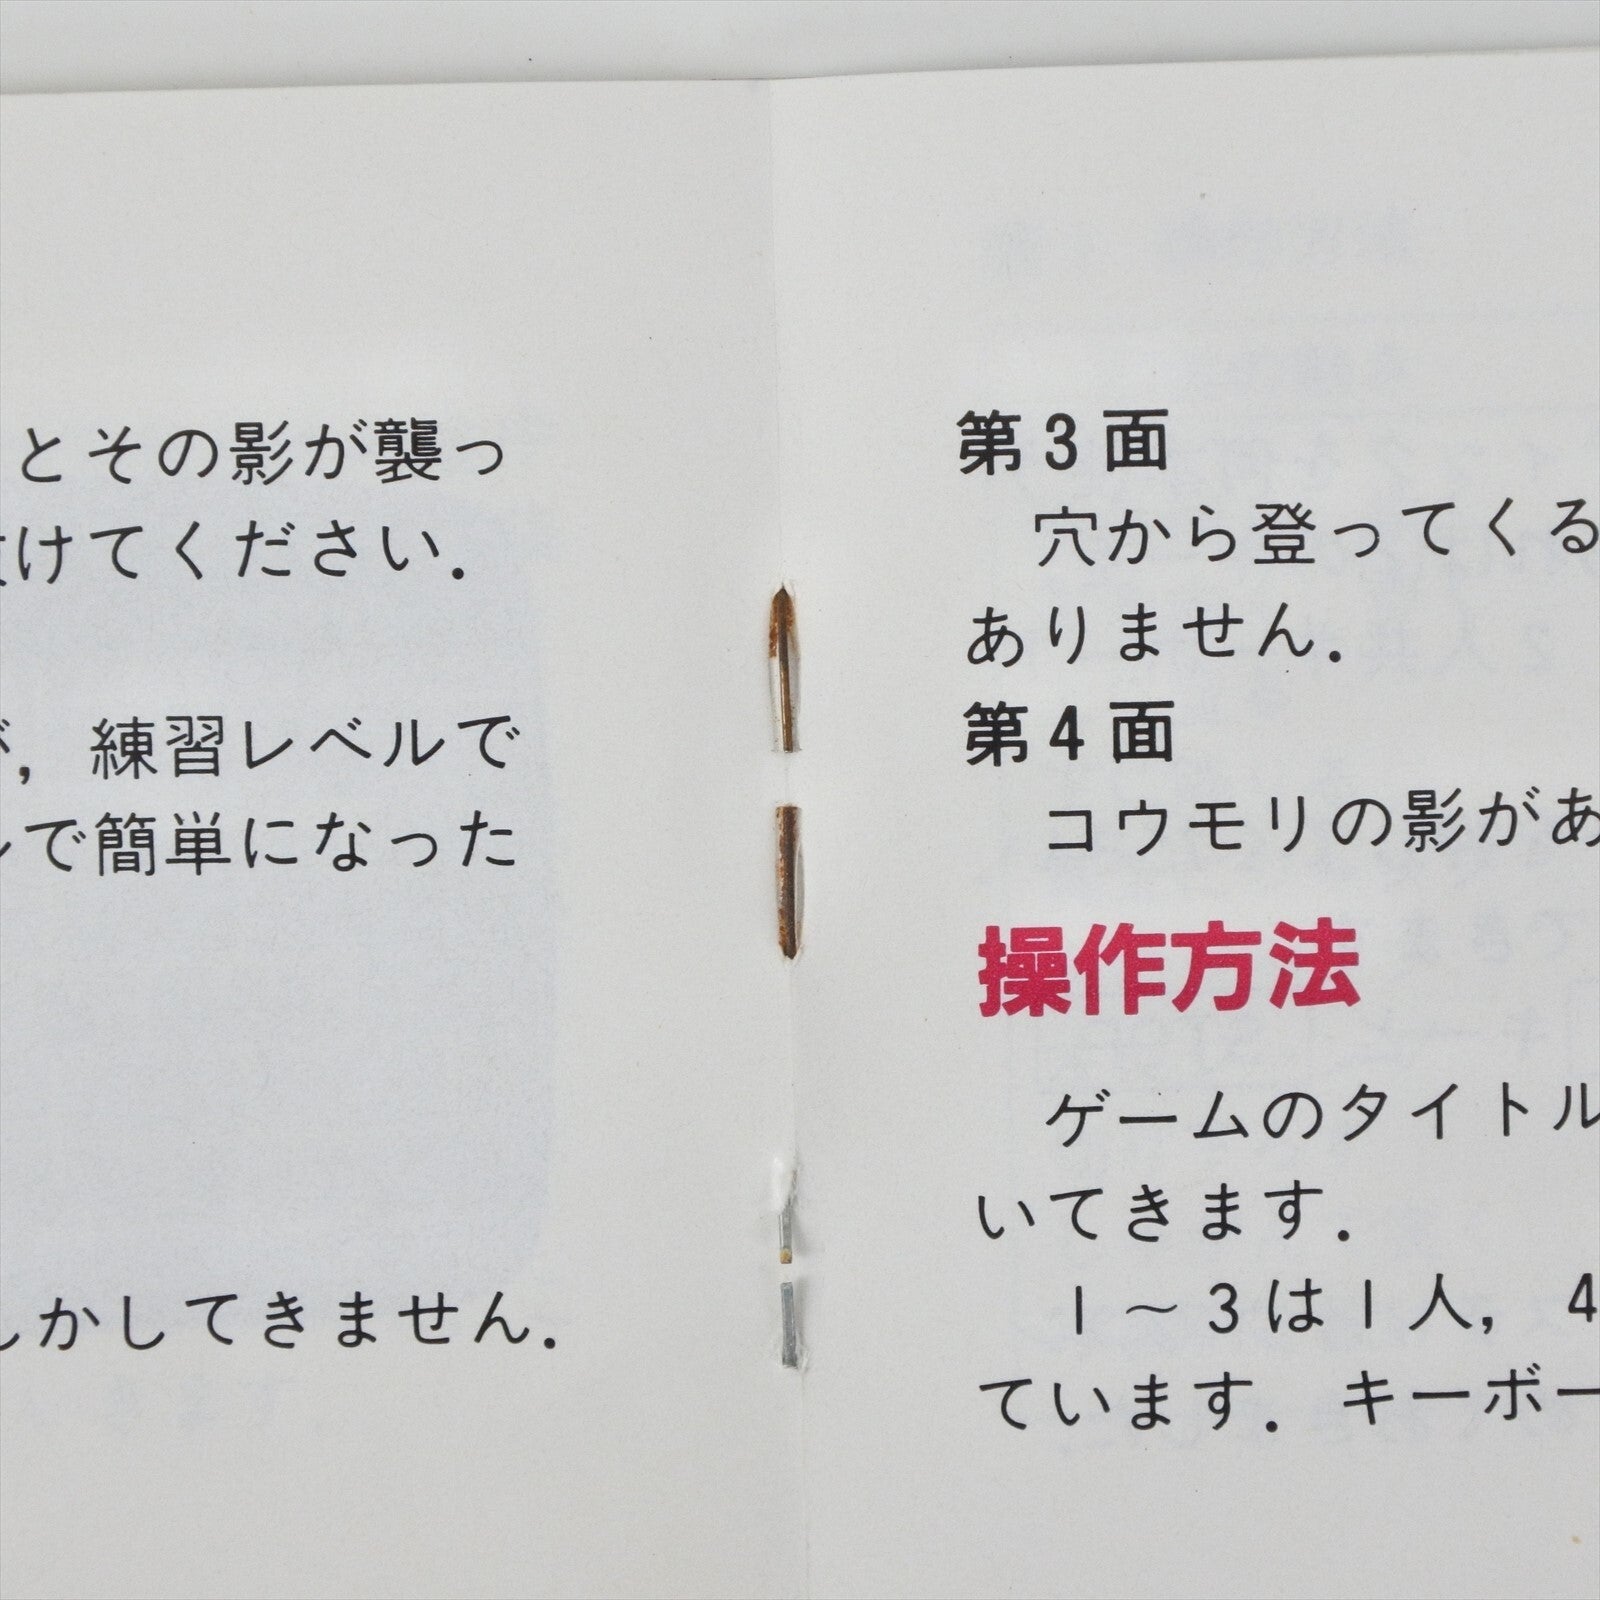 とその影が襲っ
けてください．
が，練習レベルで
で簡単になった
しかしてきません．
第3面
穴から登ってくる
ありません．
第4面
コウモリの影があ
操作方法
ゲームのタイトル
いてきます．
1～3は1人，4
ています．キーボー